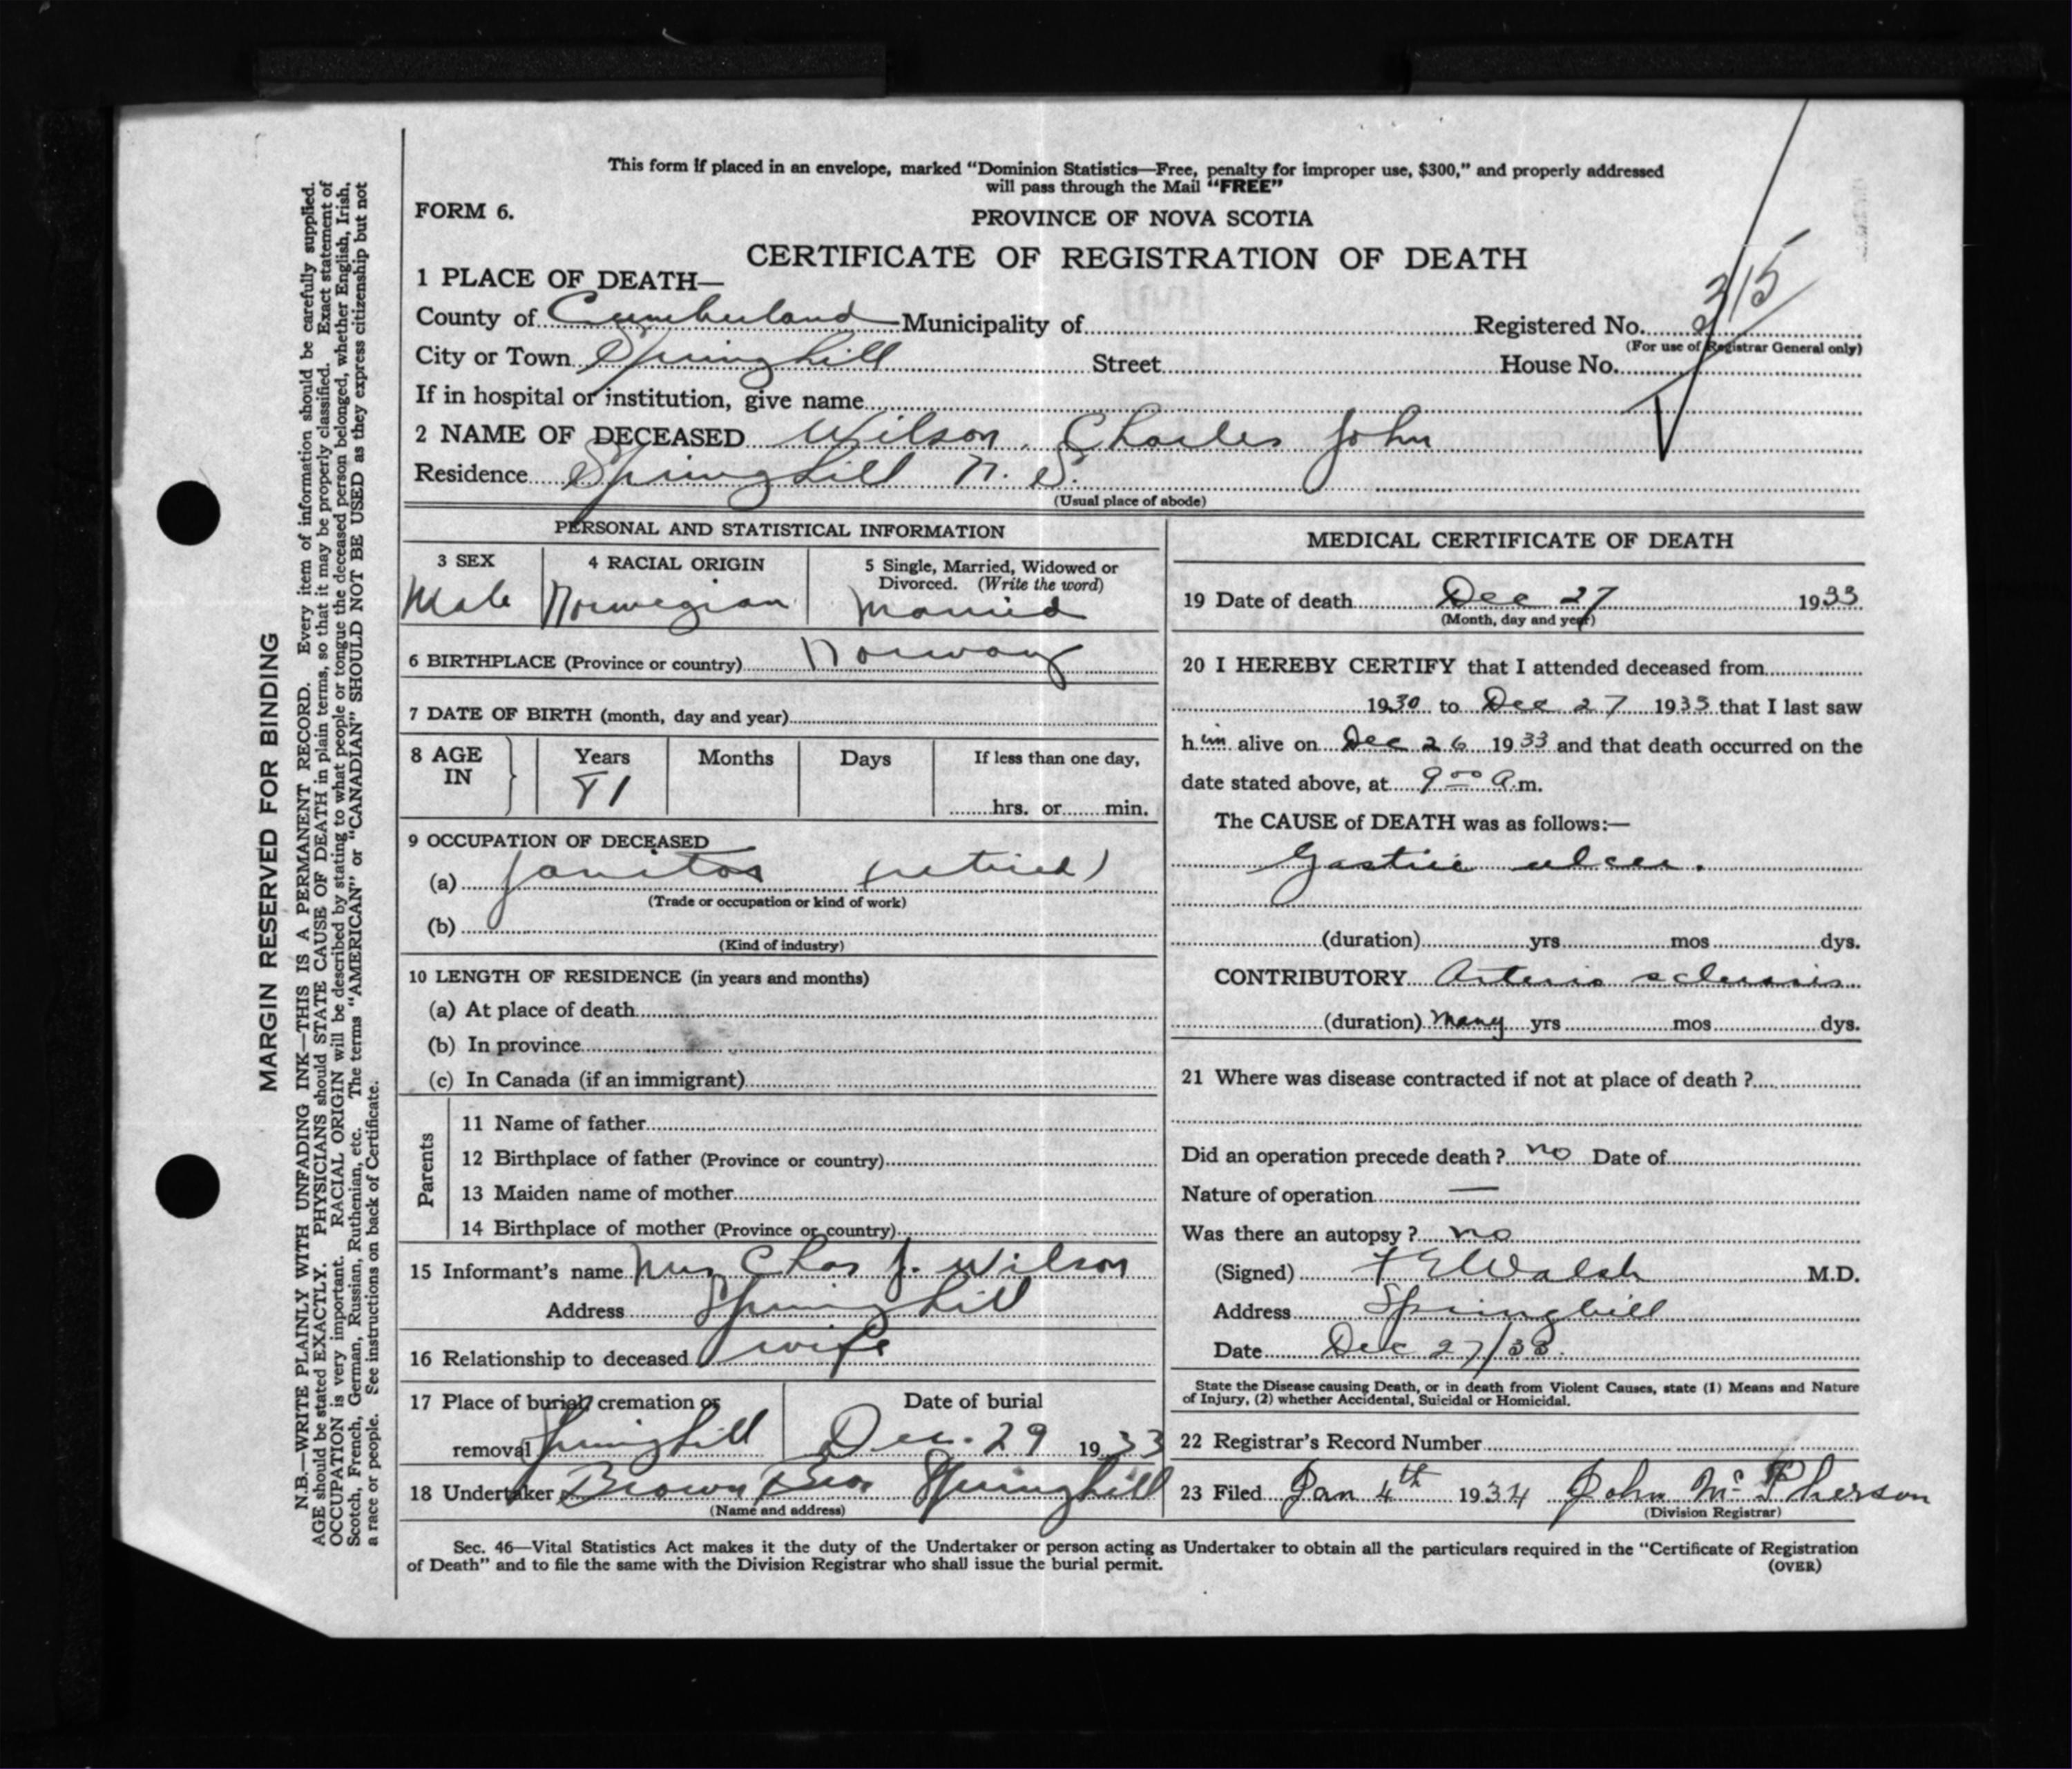 This form if placed in an envelope, marked “Dominion Statistics—Free, penalty for improper use, $300,” and properly addressed
will pass through the Mail “FREE”
FORM 6.
PROVINCE OF NOVA SCOTIA
CERTIFICATE OF REGISTRATION OF DEATH
1 PLACE OF DEATH—
County of Cumberland Municipality of Registered No.
(For use of Registrar General only)
City or Town Springhill Street House No.
If in hospital or institution, give name
2 NAME OF DECEASED Wilson, Charles John
Residence Springhill N. S.
(Usual place of abode)
PERSONAL AND STATISTICAL INFORMATION
3 SEX 4 RACIAL ORIGIN 5 Single, Married, Widowed or
Divorced. (Write the word)
Male Norwegian Married
6 BIRTHPLACE (Province or country) Norway
7 DATE OF BIRTH (month, day and year)
8 AGE IN Years Months Days If less than one day,
81 hrs. or min.
9 OCCUPATION OF DECEASED
(a) Janitor (retired)
(Trade or occupation or kind of work)
(b)
(Kind of industry)
10 LENGTH OF RESIDENCE (in years and months)
(a) At place of death
(b) In province
(c) In Canada (if an immigrant)
Parents
11 Name of father
12 Birthplace of father (Province or country)
13 Maiden name of mother
14 Birthplace of mother (Province or country)
15 Informant's name Mrs Chas J. Wilson
Address Springhill
16 Relationship to deceased wife
17 Place of burial, cremation or Date of burial
removal Springhill Dec. 29 1933
18 Undertaker Brown Bros Springhill
(Name and address)
MEDICAL CERTIFICATE OF DEATH
19 Date of death Dec 27 1933
(Month, day and year)
20 I HEREBY CERTIFY that I attended deceased from
1930 to Dec 27 1933 that I last saw
him alive on Dec 26 1933 and that death occurred on the
date stated above, at 9 00 a.m.
The CAUSE of DEATH was as follows:—
Gastric ulcer.
(duration) yrs mos dys.
CONTRIBUTORY Arterio sclerosis
(duration) Many yrs mos dys.
21 Where was disease contracted if not at place of death ?
Did an operation precede death ? no Date of
Nature of operation —
Was there an autopsy ? no
(Signed) F E Walsh M.D.
Address Springhill
Date Dec 27/33.
State the Disease causing Death, or in death from Violent Causes, state (1) Means and Nature
of Injury, (2) whether Accidental, Suicidal or Homicidal.
22 Registrar's Record Number
23 Filed Jan 4th 1934 John McPherson
(Division Registrar)
Sec. 46—Vital Statistics Act makes it the duty of the Undertaker or person acting as Undertaker to obtain all the particulars required in the “Certificate of Registration
of Death” and to file the same with the Division Registrar who shall issue the burial permit.
(OVER)
MARGIN RESERVED FOR BINDING
N.B.—WRITE PLAINLY WITH UNFADING INK—THIS IS A PERMANENT RECORD. Every item of information should be carefully supplied.
AGE should be stated EXACTLY. PHYSICIANS should STATE CAUSE OF DEATH in plain terms, so that it may be properly classified. Exact statement of
OCCUPATION is very important. RACIAL ORIGIN will be described by stating to what people or tongue the deceased person belonged, whether English, Irish,
Scotch, French, German, Russian, Ruthenian, etc. The terms “AMERICAN” or “CANADIAN” SHOULD NOT BE USED as they express citizenship but not
a race or people. See instructions on back of Certificate.